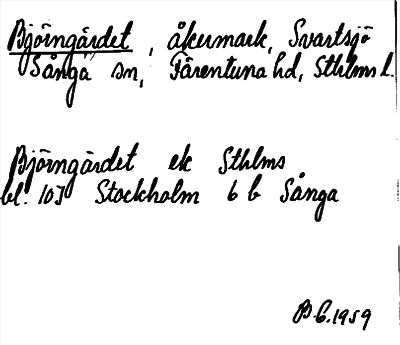 Björngärdet, åkermark, Svartsjö
Sånga sn, Färentuna hd, Sthlms l.
Björngärdet ek Sthlms
bl. 103 Stockholm 6 b Sånga
B G. 1959